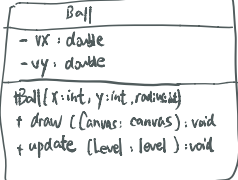 Ball
- vx : double
- vy : double
+Ball(x:int, y:int, radius:int)
+ draw (Canvas: canvas): void
+ update (Level: level): void